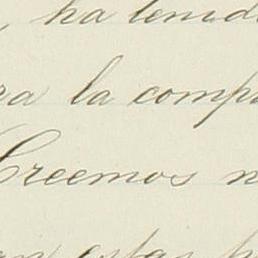 , ha tenido
ra la compa
Creemos n
an estas h